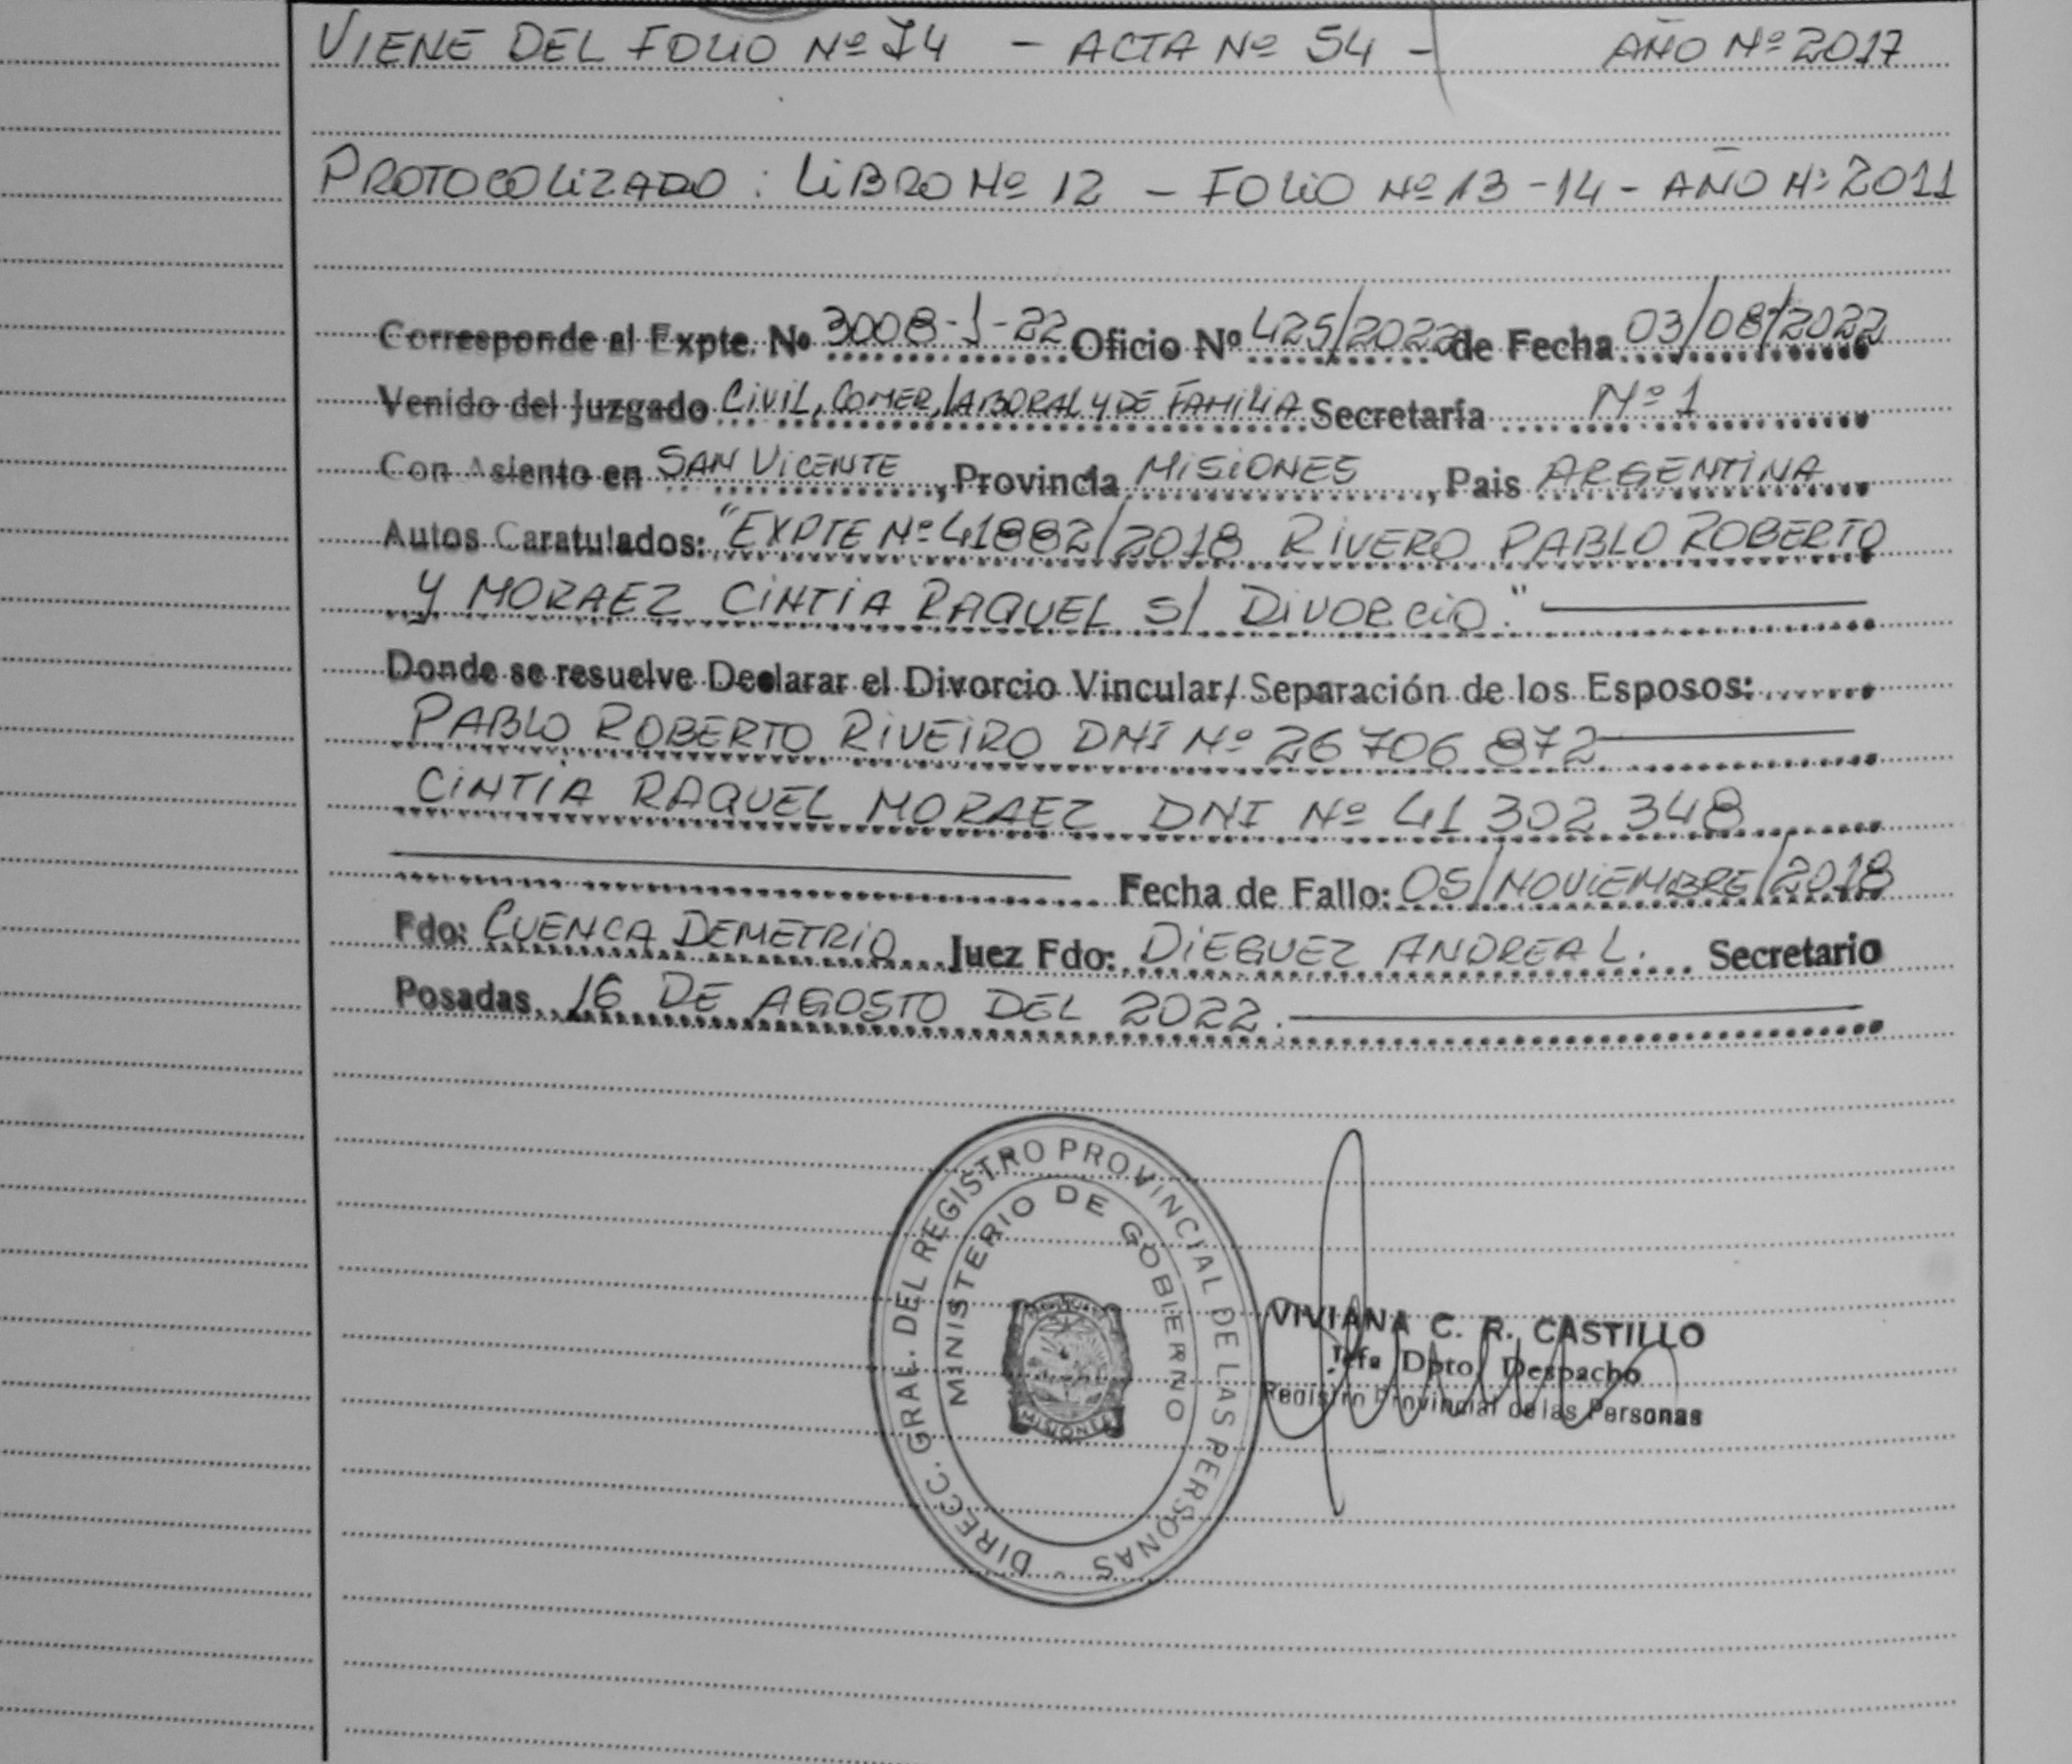 VIENE DEL FOLIO Nº 74 - ACTA Nº 54 - AÑO Nº 2017
PROTOCOLIZADO: LIBRO Nº 12 - FOLIO Nº 13-14 - AÑO Nº 2011
Corresponde al Expte. Nº 3008-J-22 Oficio Nº 425/2022 de Fecha 03/08/2022
Venido del Juzgado CIVIL, COMER, LABORAL Y DE FAMILIA Secretaría Nº 1
Con Asiento en SAN VICENTE, Provincia MISIONES, Pais ARGENTINA
Autos Caratulados: "EXPTE Nº 41882/2018 RIVERO PABLO ROBERTO
Y MORAEZ CINTIA RAQUEL S/ DIVORCIO."
Donde se resuelve Declarar el Divorcio Vincular/ Separación de los Esposos:
PABLO ROBERTO RIVEIRO DNI Nº 26 706 872
CINTIA RAQUEL MORAEZ DNI Nº 41 302 348
Fecha de Fallo: 05/NOVIEMBRE/2018
Fdo: CUENCA DEMETRIO Juez Fdo: DIEGUEZ ANDREA L. Secretario
Posadas, 16 DE AGOSTO DEL 2022.
DIRECC. GRAL. DEL REGISTRO PROVINCIAL DE LAS PERSONAS
MINISTERIO DE GOBIERNO
MISIONES
VIVIANA C. R. CASTILLO
Jefa Dpto Despacho
Registro Provincial de las Personas